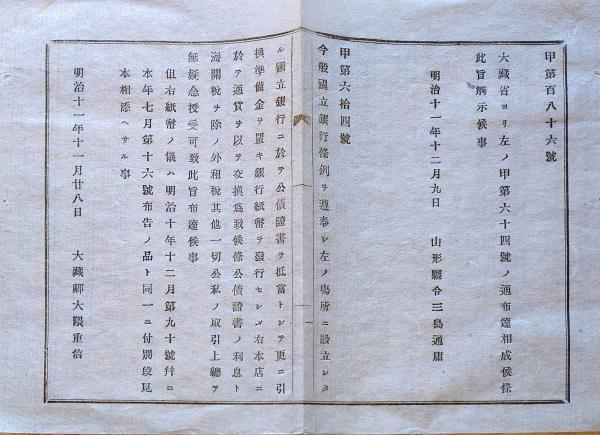 甲第百八十六號
大藏省ヨリ左ノ甲第六十四號ノ通布達相成候條
此旨觸示候事
明治十一年十二月九日　山形縣令三島通庸
甲第六拾四號
今般國立銀行條例ヲ遵奉シ左ノ塲所ニ設立シタ
ル國立銀行ニ於テ公債證書ヲ抵當トシテ更ニ引
換準備金ヲ置キ銀行紙幣ヲ發行セシメ右本店ニ
於テ通貨ヲ以テ交換爲致候條公債證書ノ利息ト
海關税ヲ除ノ外租税其他一切公私ノ取引上總テ
無疑念授受可致此旨布達候事
但右紙幣ノ儀ハ明治十年十二月第九十號幷ニ
本年七月第十六號布告ノ品ト同一ニ付別段見
本相添ヘサル事
明治十一年十一月廿八日　大藏卿大隈重信